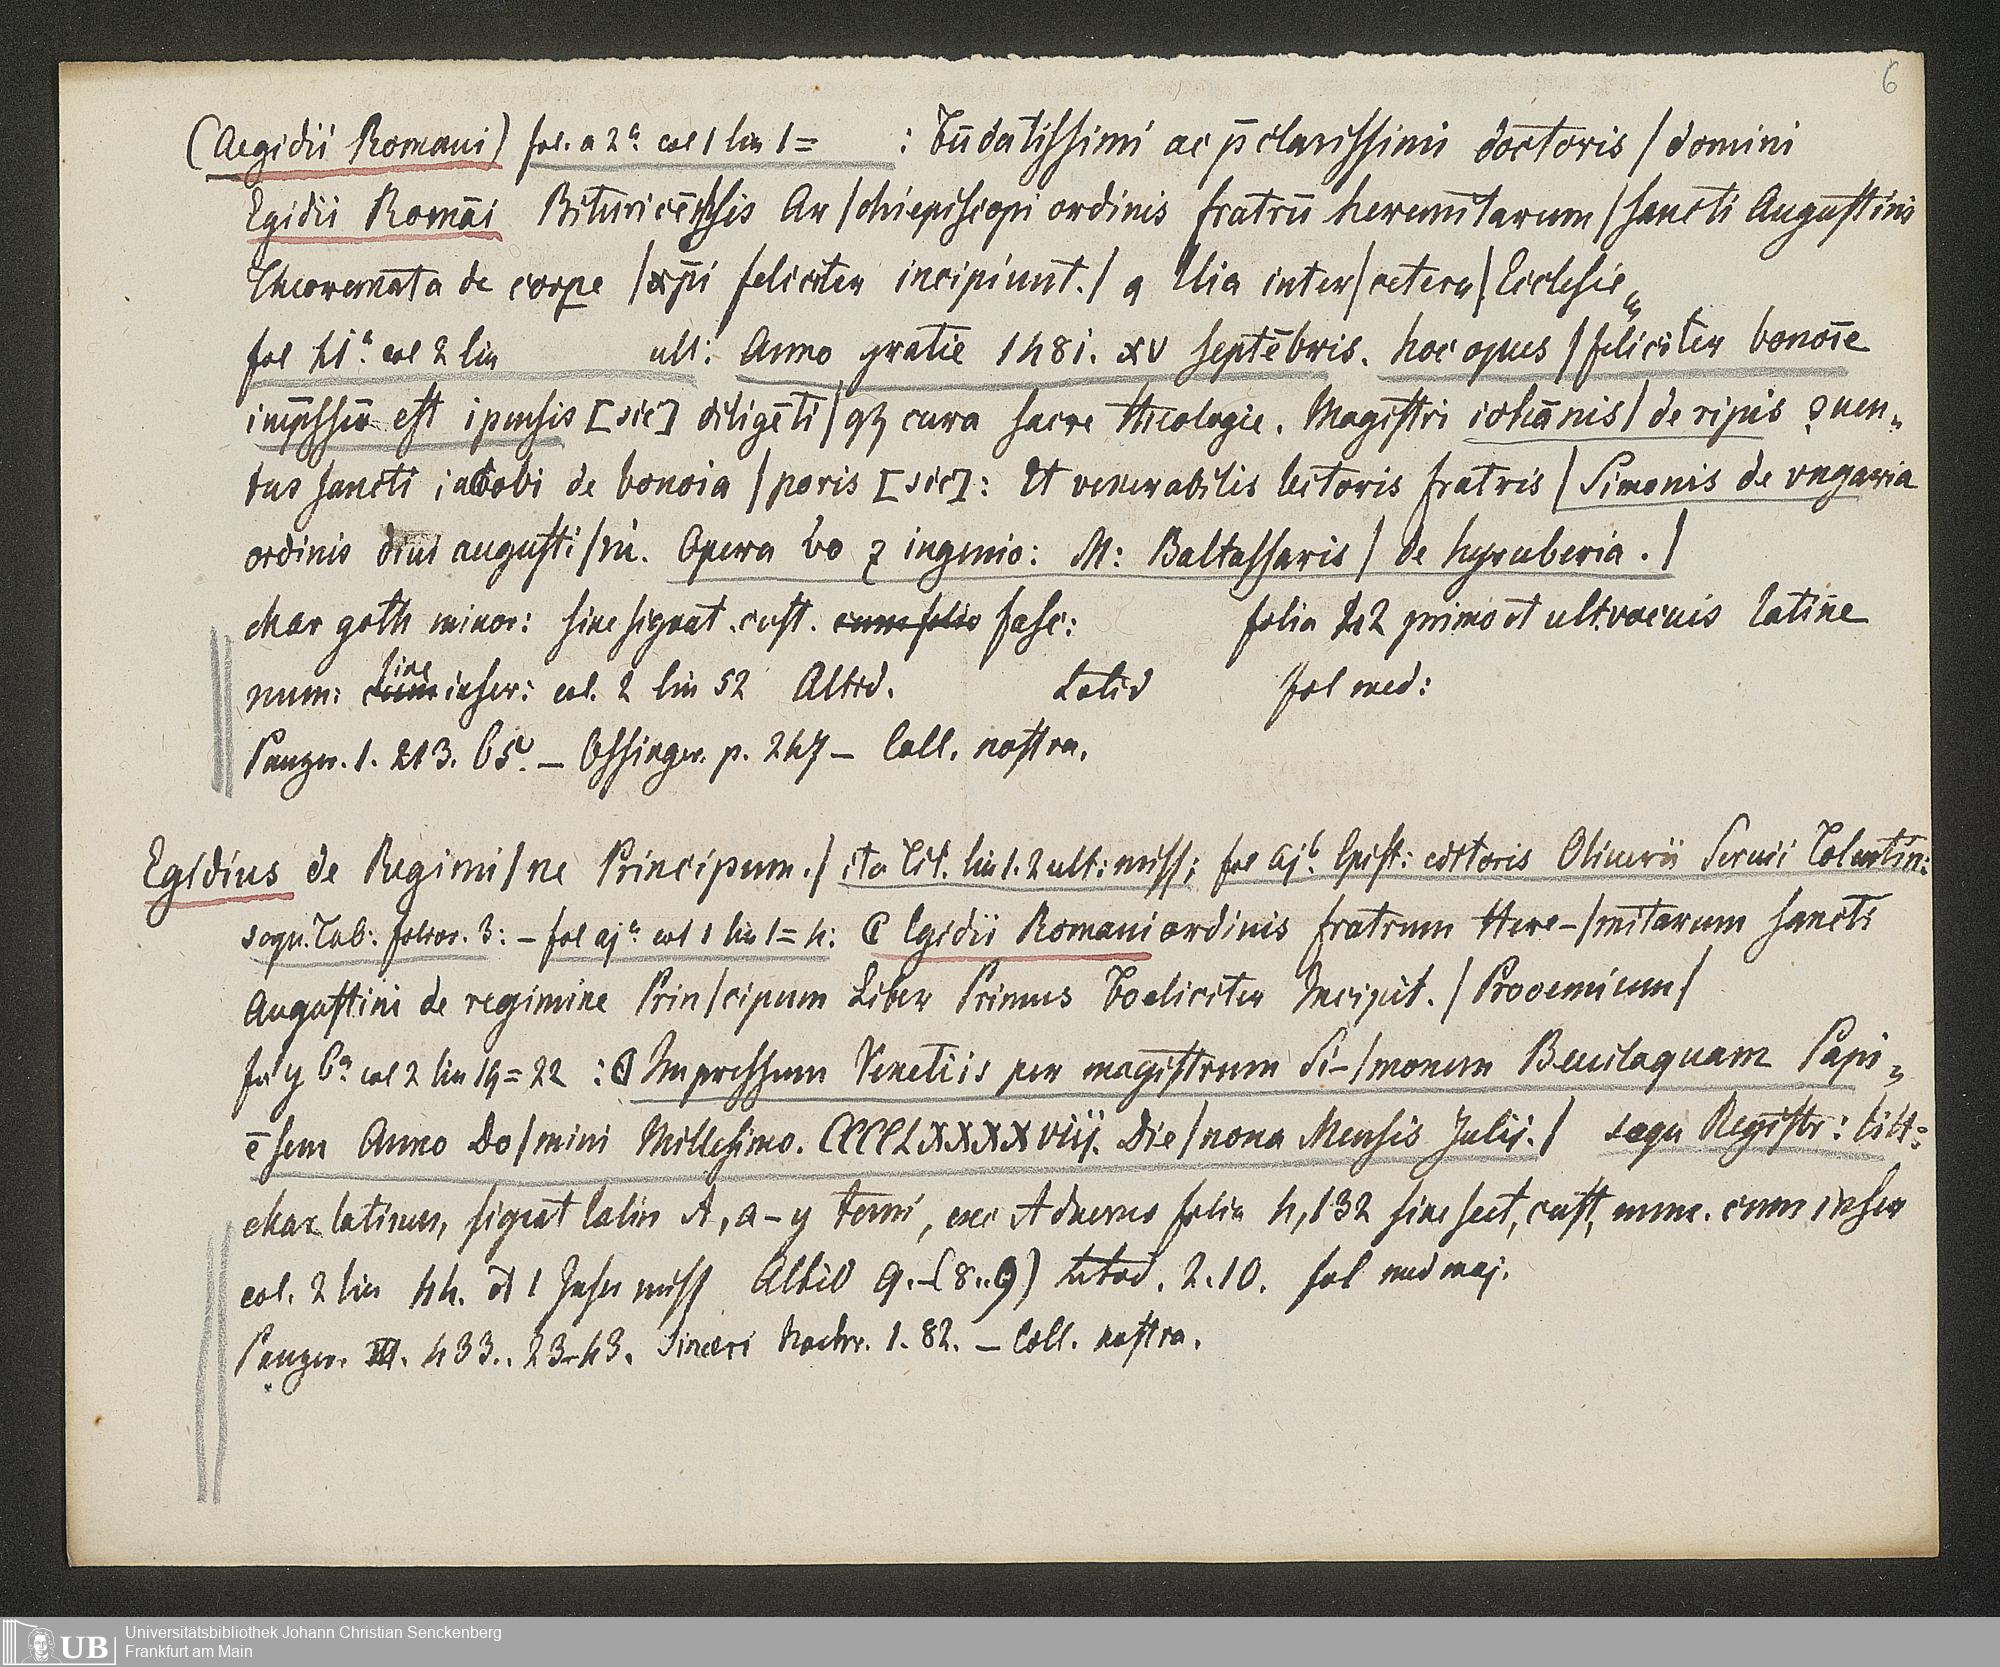 6
(Aegidii Romani) fol. a 2ª col 1 lin 1= : Eūdatissimi ac p̄clarissimi doctoris / domini
Egidii Romāi Bituricēssis Ar / chiepiscopi ordinis fratrū heremitarum / sancti Augustini
Theoremata de corpe / xp̄i feliciter incipiunt. / q Uia inter / cetera / Ecclesie„
fol 41ª col 2 lin ult: Anno gratie 1481. xv septēbris. hoc opus / feliciter bonoīe
imp̄ssū est ipensis [sic] diligēti / qz cura sacre theologie. Magistri iohānis / de ripis
tus sancti iacobi de bonoia / poris [sic]: Et venerabilis lectoris fratris / Simonis de vngaria
ordinis diui augusti / ni. Opera v̓o z ingenio: M: Baltassaris / de hyruberia. /
char goth minor: sine signat. cust. fasc: folia 42 primo et ult. vacuis latine
num: sine inscr: col. 2 lin 52 Altid. Latid fol med:
Panzer. 1. 213. 65. – Ossinger. p. 247 – Coll. nostra.
Egidius de Regimi / ne Principum. / ita Tit. lin 1. 2 ult: miss; fol aj b Epist: editoris Oliuerii Seruii Tolentin:
sequ. Tab: folior. 3: – fol aj ª col 1 lin 1=4: C Egidii Romani ordinis fratrum Here- / mitarum sancti
Augustini de regimine Prin / cipum Liber Primus Foeliciter Incipit. / Prooemium /
fol y 6ª col 2 lin 19=22 : C Impressum Venetiis per magistrum Si- / monem Beuilaquam Papi„
ēsem Anno Do / mini Millesimo. CCCCLXXXXviij. Die / nona Mensis Julij. / sequ Registr: litt:
char latinus, signat latin A, a – y terni, exc A duerno folia 4, 132 sine sect, cust, num. cum inscr
col. 2 lin 44. et 1 Inscr miss Altid 9.-(8..9) Latid. 2.10. fol med maj.
Panzer. III. 433.. 2343. Sinceri Nachr. 1. 82. – Coll. nostra.
UB
Universitätsbibliothek Johann Christian Senckenberg
Frankfurt am Main